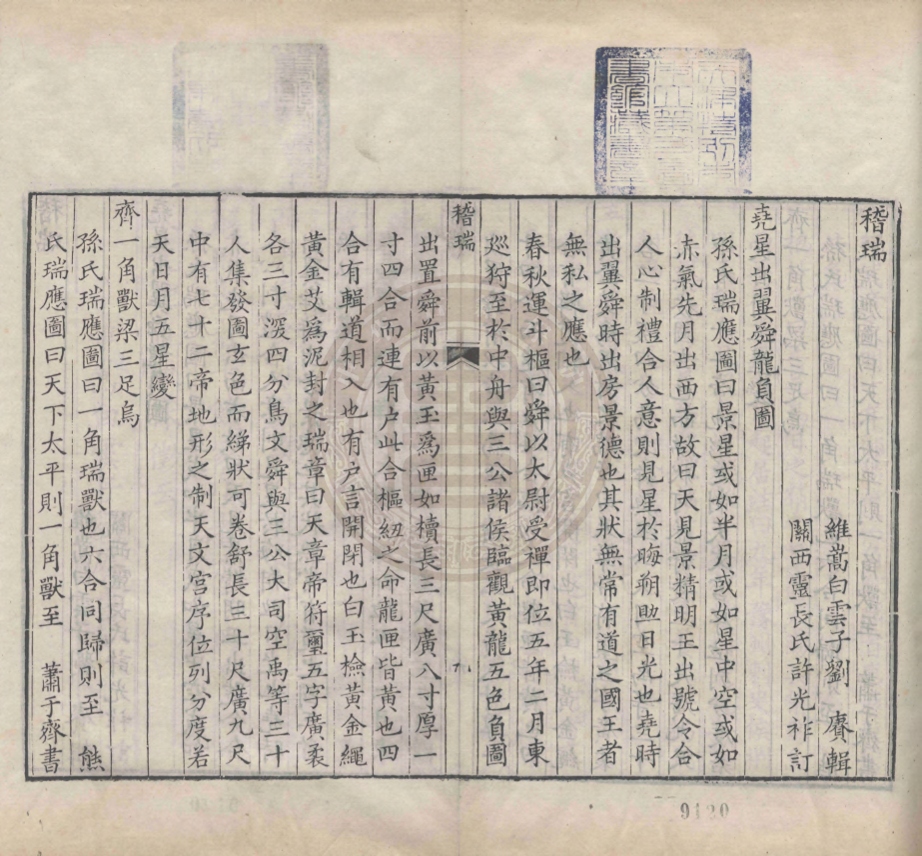 稽瑞
維嵩白雲子劉賡輯
關西靈長氏許光祚訂
堯星出翼舜龍負圖
孫氏瑞應圖曰景星或如半月或如星中空或如
赤氣先月出西方故曰天見景精明王出號令合
人心制禮合人意則見星於晦朔助日光也堯時
出翼舜時出房景德也其狀無常有道之國王者
無私之應也
春秋運斗樞曰舜以太尉受禪即位五年二月東
廵狩至於中舟與三公諸侯臨觀黃龍五色負圖
稽瑞
出置舜前以黃玉爲匣如櫝長三尺廣八寸厚一
寸四合而連有户此合樞紐之命龍匣皆黃也四
合有輯道相入也有户言開閉也白玉檢黃金繩
黃金艾爲泥封之瑞章曰天章帝符璽五字廣袤
各三寸深四分鳥文舜與三公大司空禹等三十
人集發圖玄色而綈狀可卷舒長三十尺廣九尺
中有七十二帝地形之制天文宫序位列分度若
天日月五星變
齊一角獸梁三足烏
孫氏瑞應圖曰一角瑞獸也六合同歸則至　熊
氏瑞應圖曰天下太平則一角獸至　蕭子齊書
9120